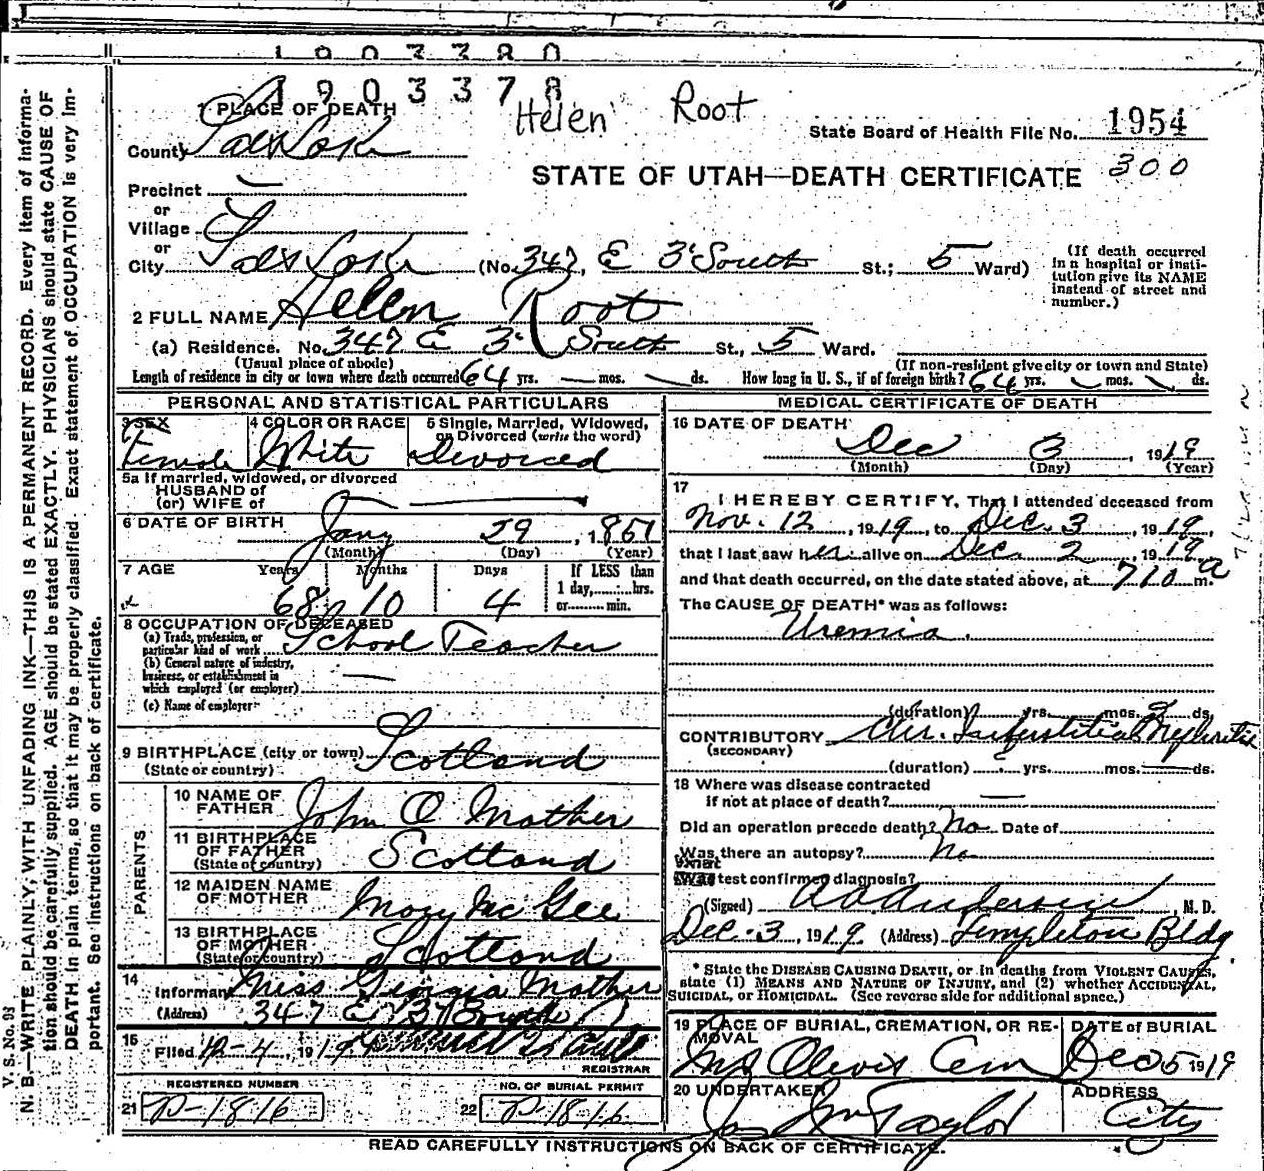 1903380
1903378
Helen Root
1 PLACE OF DEATH
State Board of Health File No. 1954
County Salt Lake
300
STATE OF UTAH—DEATH CERTIFICATE
Precinct
or
Village
or
City Salt Lake (No. 347, E 3' South St.; 5 Ward)
(If death occurred in a hospital or institution give its NAME instead of street and number.)
2 FULL NAME Helen Root
(a) Residence. No. 347 E 3' South St., 5 Ward.
(Usual place of abode) (If non-resident give city or town and State)
Length of residence in city or town where death occurred 64 yrs. — mos. ds. How long in U. S., if of foreign birth? 64 yrs. mos. ds.
PERSONAL AND STATISTICAL PARTICULARS
3 SEX Female
4 COLOR OR RACE White
5 Single, Married, Widowed, or Divorced (write the word) Divorced
5a If married, widowed, or divorced
HUSBAND of
(or) WIFE of
6 DATE OF BIRTH Jany 29, 1851
(Month) (Day) (Year)
7 AGE Years 68 Months 10 Days 4
If LESS than 1 day,......hrs. or......min.
8 OCCUPATION OF DECEASED
(a) Trade, profession, or particular kind of work School Teacher
(b) General nature of industry, business, or establishment in which employed (or employer) —
(c) Name of employer
9 BIRTHPLACE (city or town) Scotland
(State or country)
PARENTS
10 NAME OF FATHER John O Mather
11 BIRTHPLACE OF FATHER Scotland
(State or country)
12 MAIDEN NAME OF MOTHER Mary McGee
13 BIRTHPLACE OF MOTHER Scotland
(State or country)
14 Informant Miss Georgia Mather
(Address) 347 E 3' South
15 Filed 12-4, 1919
REGISTRAR
REGISTERED NUMBER
21 P-1816
NO. OF BURIAL PERMIT
22 P-1816
MEDICAL CERTIFICATE OF DEATH
16 DATE OF DEATH
Dec 3, 1919
(Month) (Day) (Year)
17
I HEREBY CERTIFY, That I attended deceased from
Nov. 12, 1919, to Dec. 3, 1919,
that I last saw her alive on Dec. 2, 1919
and that death occurred, on the date stated above, at 710 a m.
The CAUSE OF DEATH* was as follows:
Uremia.
(duration) yrs. mos. 2 ds.
CONTRIBUTORY Chr. Interstitial Nephritis
(SECONDARY)
(duration) yrs. mos. ds.
18 Where was disease contracted
if not at place of death? —
Did an operation precede death? No Date of
Was there an autopsy? No
What test confirmed diagnosis?
(Signed) M. D.
Dec. 3, 1919 (Address) Templeton Bldg
* State the DISEASE CAUSING DEATH, or in deaths from VIOLENT CAUSES, state (1) MEANS AND NATURE OF INJURY, and (2) whether ACCIDENTAL, SUICIDAL, or HOMICIDAL. (See reverse side for additional space.)
19 PLACE OF BURIAL, CREMATION, OR REMOVAL
Mt Olivet Cem
DATE of BURIAL
Dec 5 1919
20 UNDERTAKER
Jos Wm Taylor
ADDRESS
City
READ CAREFULLY INSTRUCTIONS ON BACK OF CERTIFICATE.
V. S. No. 93
N. B.—WRITE PLAINLY, WITH UNFADING INK—THIS IS A PERMANENT RECORD. Every item of information should be carefully supplied. AGE should be stated EXACTLY. PHYSICIANS should state CAUSE OF DEATH in plain terms, so that it may be properly classified. Exact statement of OCCUPATION is very important. See instructions on back of certificate.